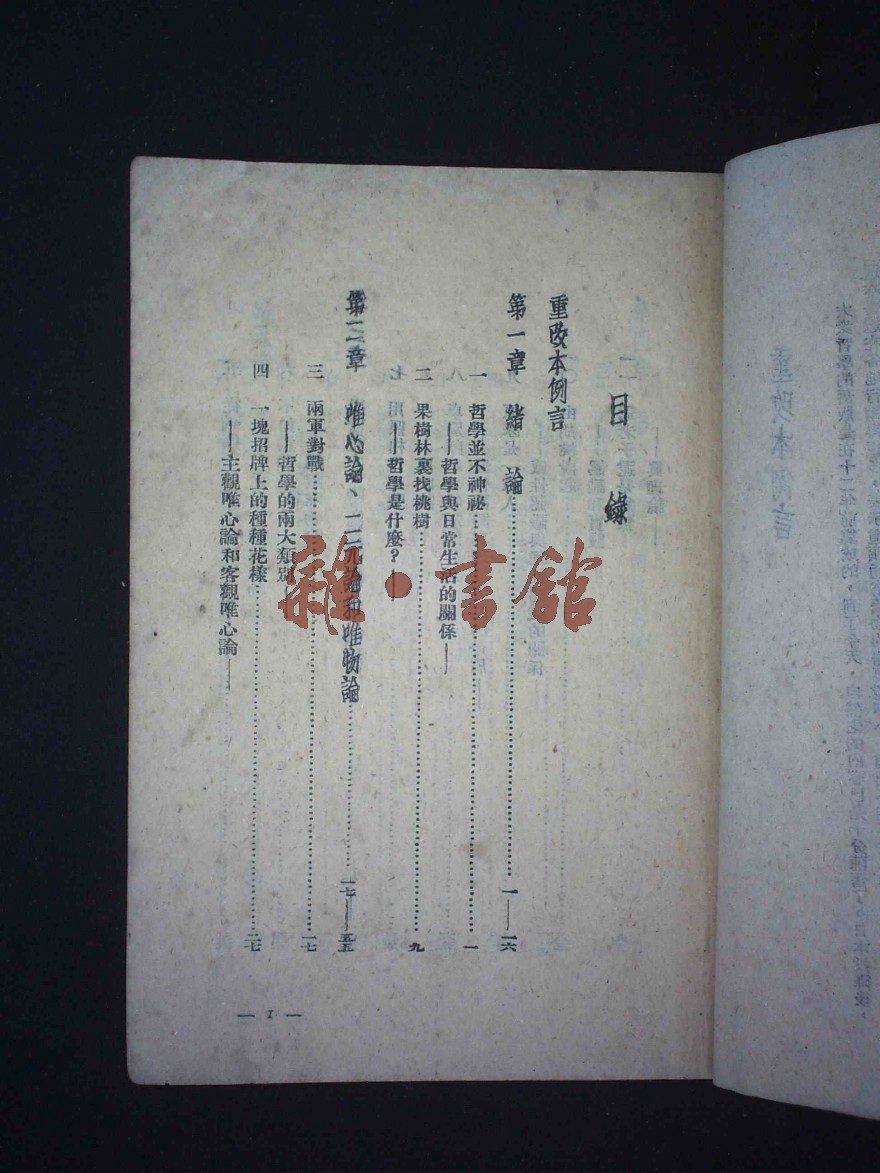 目錄
重改本例言
第一章 緒論……一——一六
一 哲學並不神祕……一
——哲學與日常生活的關係——
二 果樹林裏找桃樹……九
——哲學是什麼？——
第二章 唯心論、二元論和唯物論……一七——五五
三 兩軍對戰……一七
——哲學的兩大類別——
四 一塊招牌上的種種花樣……二七
——主觀唯心論和客觀唯心論——
— 1 —
雜·書館